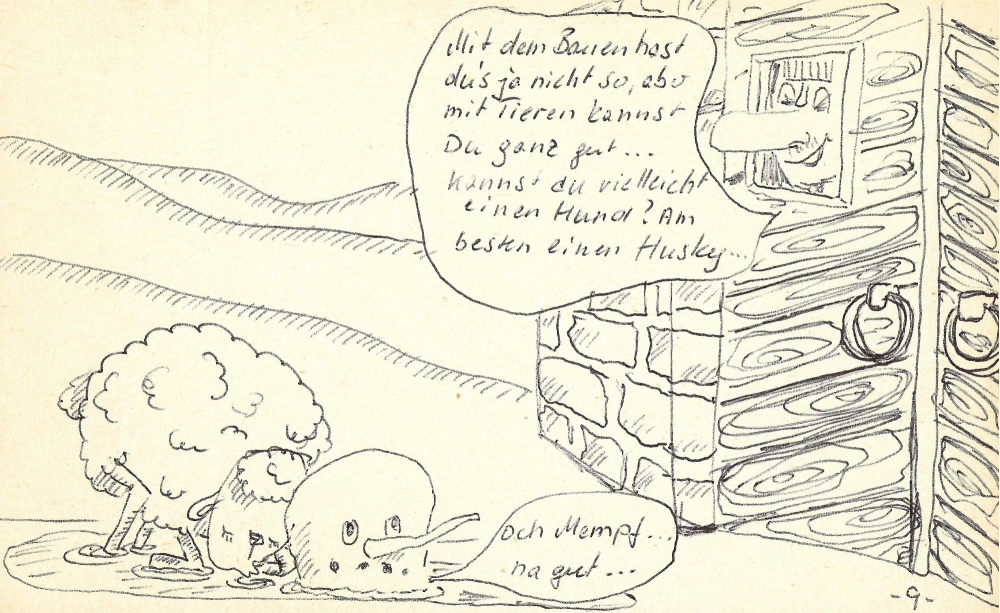 Mit dem Bauen hast
du's ja nicht so, aber
mit Tieren kannst
Du ganz gut...
kannst du vielleicht
einen Hund? Am
besten einen Husky...
och Mempf...
na gut...
-9-